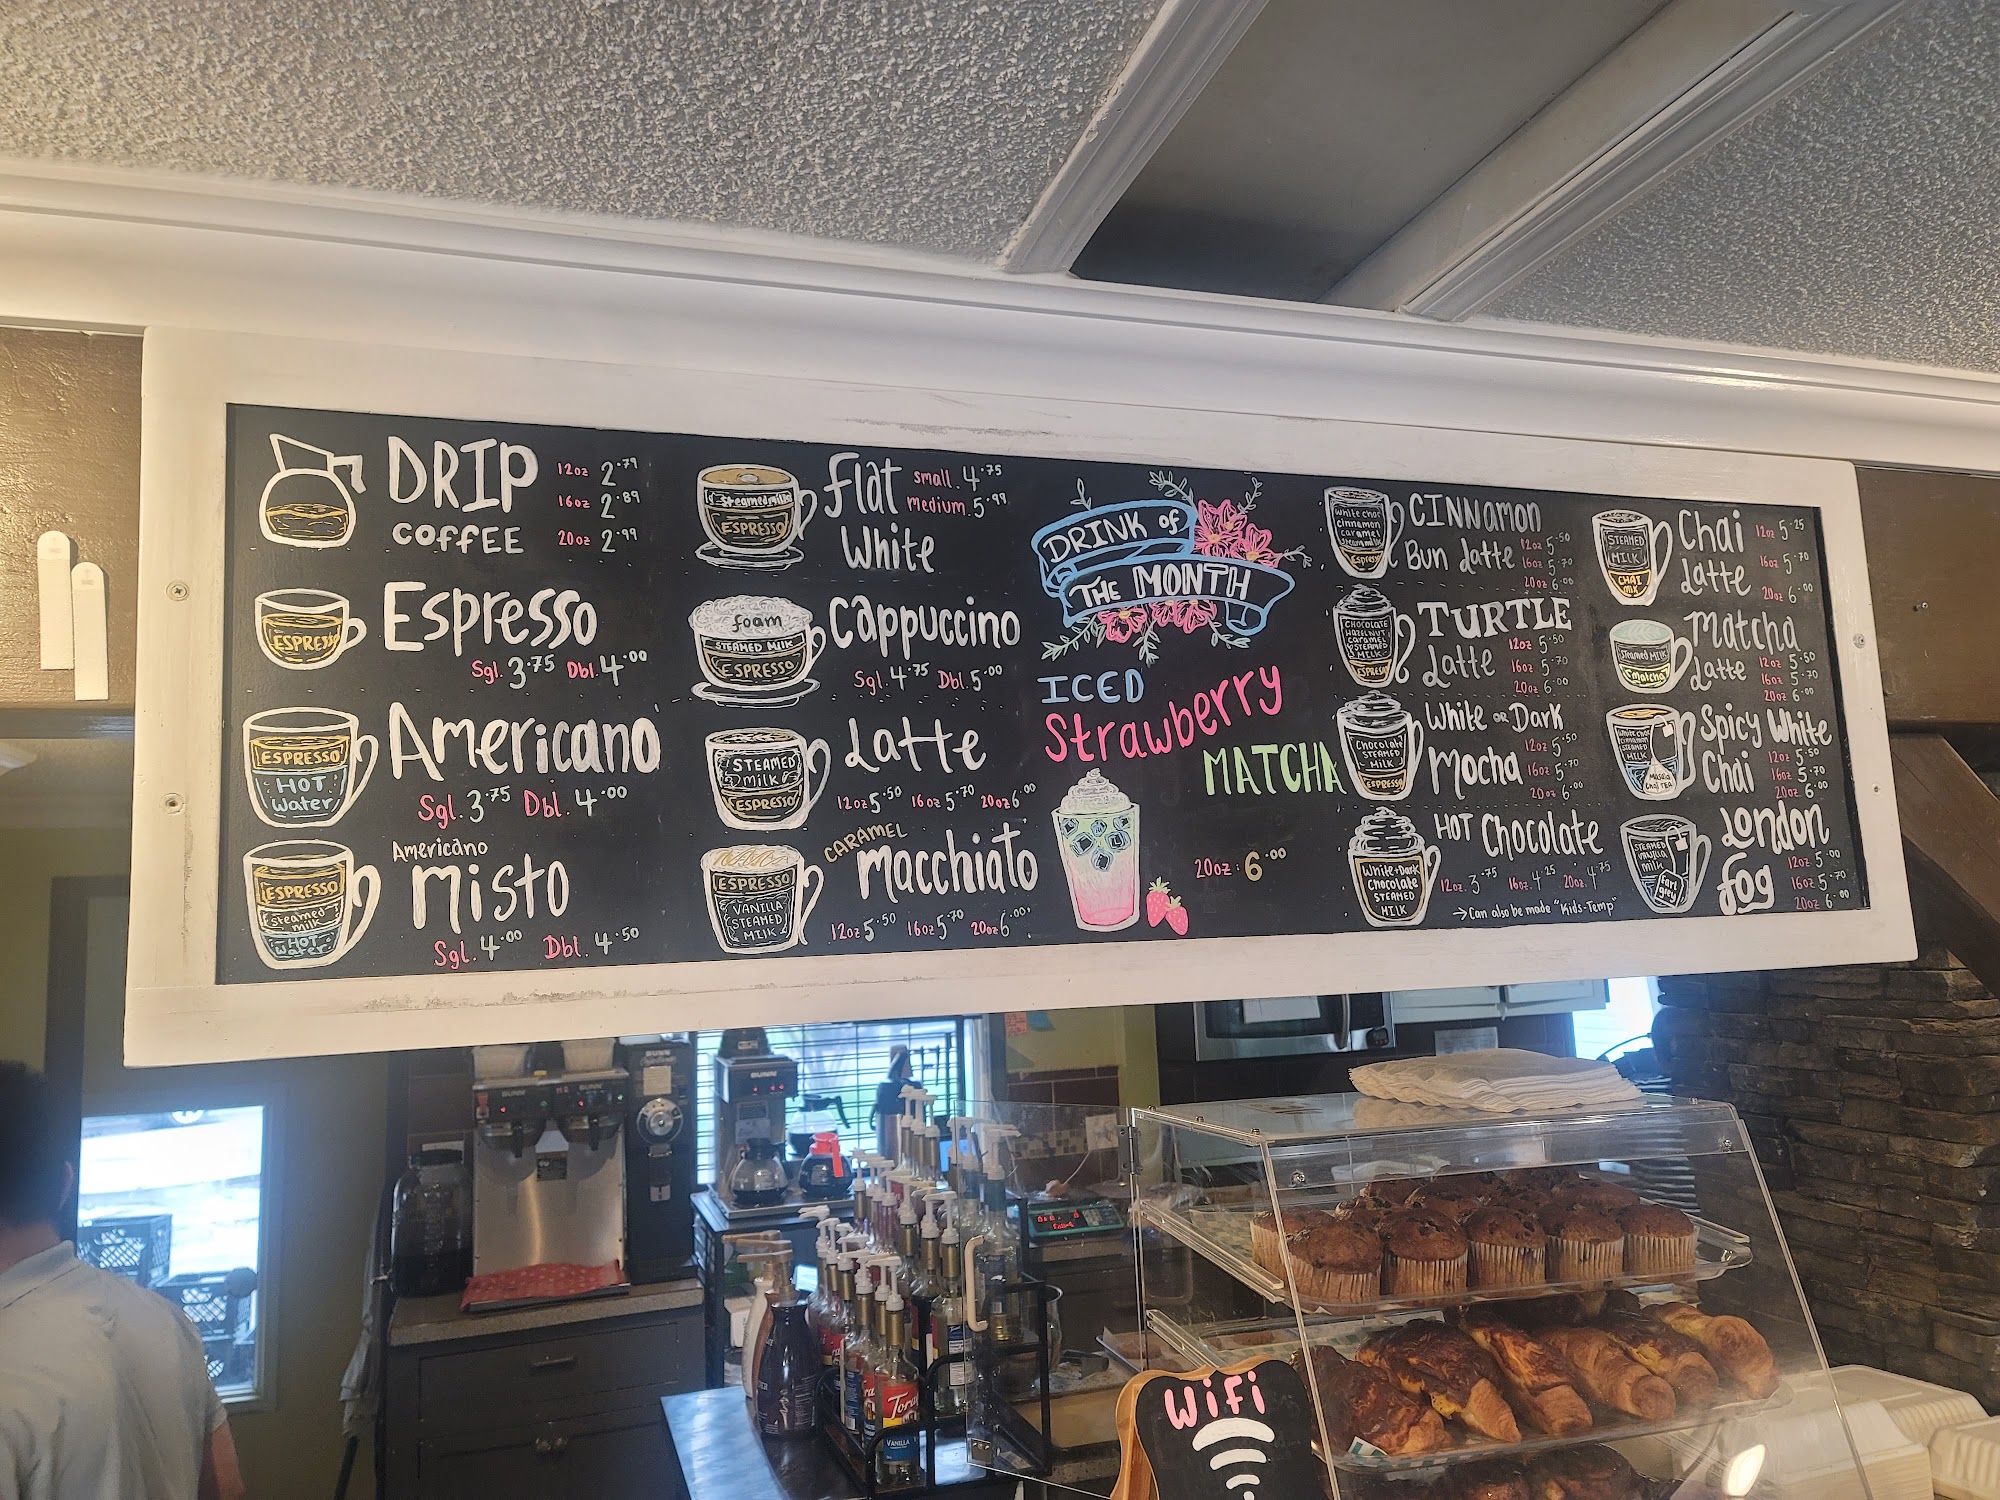 DRIP
COFFEE
12oz 2.79
16oz 2.89
20oz 2.99
ESPRESSO
Espresso
Sgl. 3.75 Dbl. 4.00
ESPRESSO
HOT
Water
Americano
Sgl. 3.75 Dbl. 4.00
ESPRESSO
steamed
milk
HOT
Water
Americano
Misto
Sgl. 4.00 Dbl. 4.50
steamed milk
ESPRESSO
Flat
White
small. 4.75
medium. 5.99
foam
STEAMED MILK
ESPRESSO
Cappuccino
Sgl 4.75 Dbl. 5.00
STEAMED
Milk
ESPRESSO
Latte
12oz 5.50 16oz 5.70 20oz 6.00
ESPRESSO
VANILLA
STEAMED
MILK
CARAMEL
Macchiato
12oz 5.50 16oz 5.70 20oz 6.00
DRINK of
THE MONTH
ICED
Strawberry
MATCHA
20oz : 6.00
White choc
cinnamon
caramel
steam milk
Espresso
CINNamon
Bun Latte
12oz 5.50
16oz 5.70
20oz 6.00
CHOCOLATE
HAZELNUT
caramel
STEAMED
MILK
ESPRESSO
TURTLE
Latte
12oz 5.50
16oz 5.70
20oz 6.00
Chocolate
STEAMED
Milk
ESPRESSO
White OR Dark
Mocha
12oz 5.50
16oz 5.70
20oz 6.00
White+Dark
Chocolate
STEAMED
MILK
HOT Chocolate
12oz. 3.75 16oz. 4.25 20oz. 4.75
→ Can also be made "Kids-Temp"
STEAMED
MILK
CHAI
MIX
Chai
Latte
12oz 5.25
16oz 5.70
20oz 6.00
Steamed MILK
Matcha
Matcha
Latte
12oz 5.50
16oz 5.70
20oz 6.00
White choc
cinnamon
STEAMED
MILK
Masala
Chai TEA
Spicy White
Chai
12oz 5.50
16oz 5.70
20oz 6.00
STEAMED
Vanilla
Milk
Earl
grey
London
Fog
12oz 5.00
16oz 5.70
20oz 6.00
BUNN
BUNN
BUNN
BUNN
Torani
VANILLA
WiFi